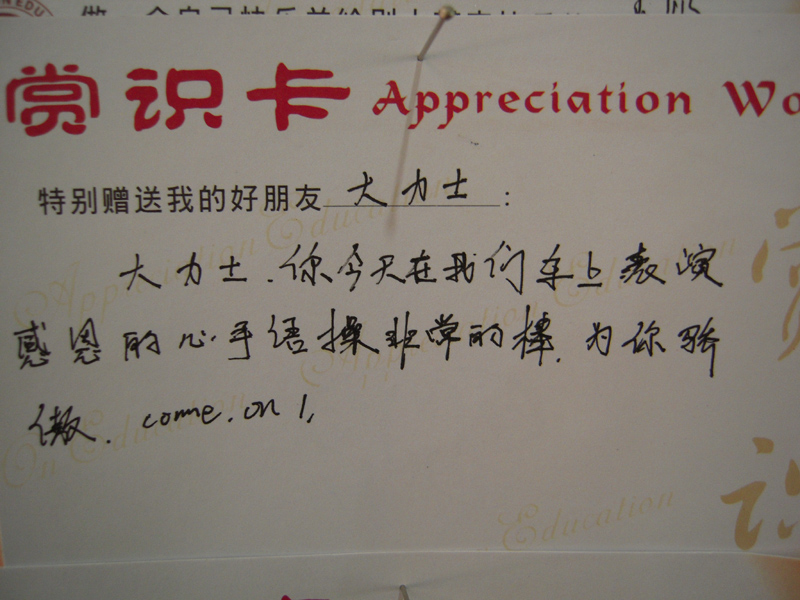 赏识卡 Appreciation Wo
特别赠送我的好朋友 大力士 :
大力士.你今天在我们车上表演
感恩的心手语操非常的棒.为你骄
傲. come.on!.
Appreciation Education
Education
赏
识